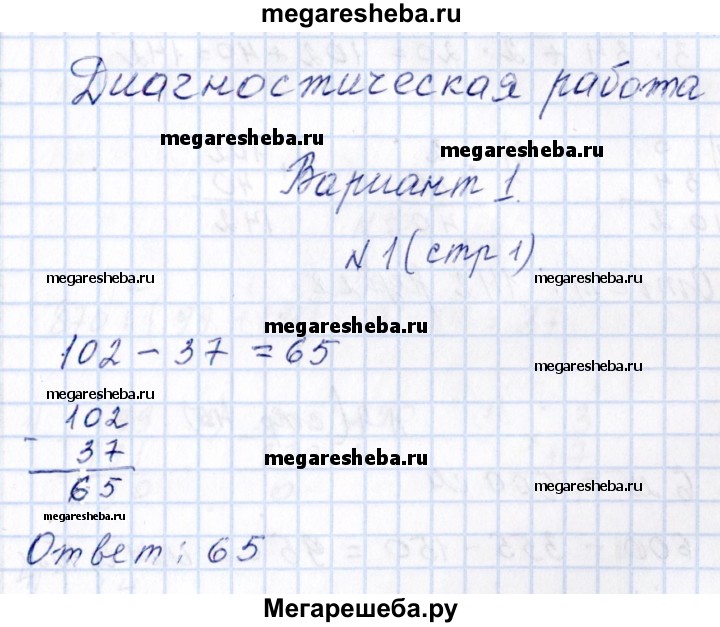 megaresheba.ru
Диагностическая работа
megaresheba.ru
megaresheba.ru
Вариант 1.
№1 (стр 1)
megaresheba.ru
megaresheba.ru
megaresheba.ru
102 - 37 = 65
megaresheba.ru
102
- 37
megaresheba.ru
65
megaresheba.ru
megaresheba.ru
Ответ: 65
megaresheba.ru
megaresheba.ru
Мегарешеба.ру